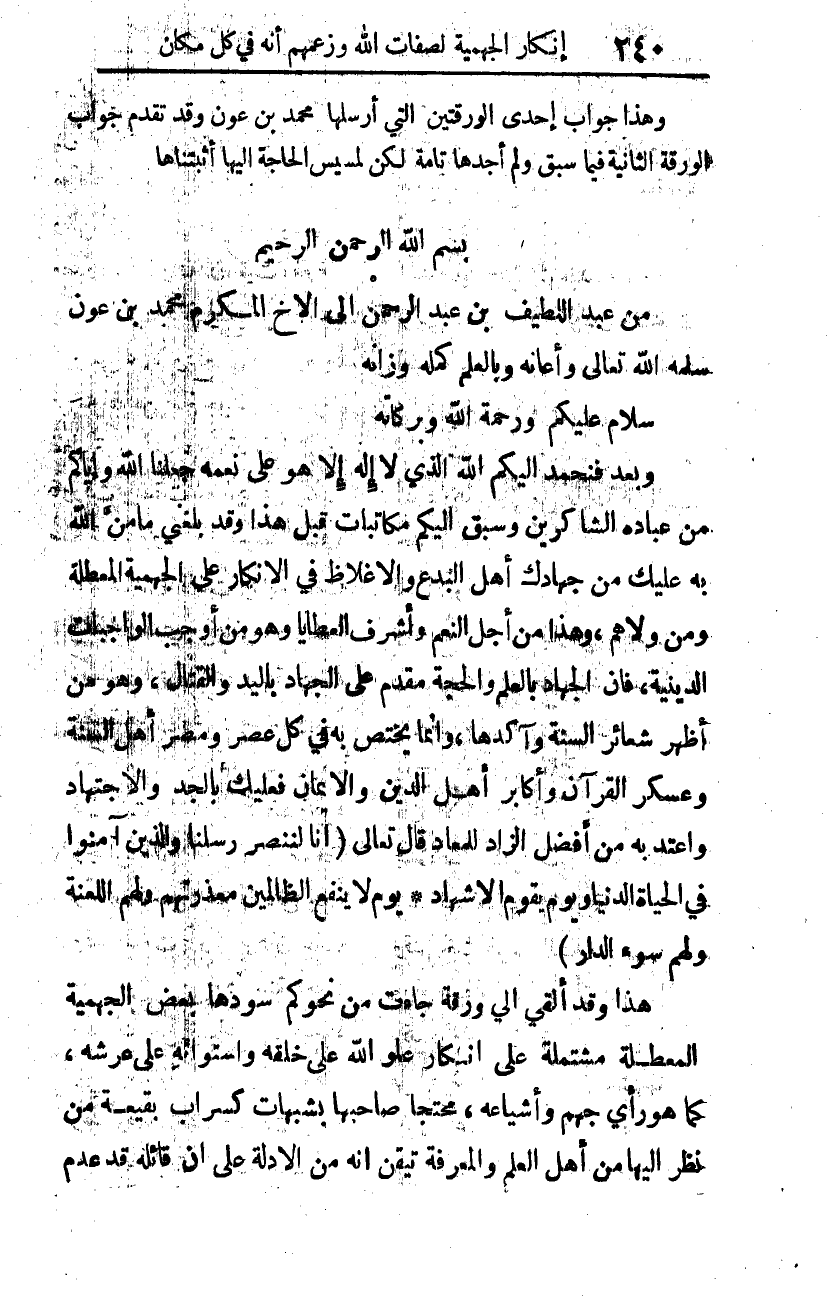 ٢٤٠ إنكار الجهمية لصفات الله وزعمهم أنه في كل مكان
وهذا جواب إحدى الورقتين التي أرسلها محمد بن عون وقد تقدم جواب
الورقة الثانية فيما سبق ولم أجدها تامة لكن لمسيس الحاجة اليها أثبتناها
بسم الله الرحمن الرحيم
من عبد اللطيف بن عبد الرحمن الى الاخ المكرم محمد بن عون
سلمه الله تعالى وأعانه وبالعلم كمله وزانه
سلام عليكم ورحمة الله وبركاته
وبعد فنحمد اليكم الله الذي لا إله إلا هو على نعمه جعلنا الله وإياكم
من عباده الشاكرين وسبق اليكم مكاتبات قبل هذا وقد بلغني مامنّ الله
به عليك من جهادك أهل البدع والاغلاظ في الانكار على الجهمية المعطلة
ومن ولاهم ، وهذا من أجل النعم وأشرف العطايا وهو من أوجب الواجبات
الدينية ، فان الجهاد بالعلم والحجة مقدم على الجهاد باليد والقتال ، وهو من
أظهر شعائر السنة وآكدها ، وانما يختص به في كل عصر ومصر أهل السنة
وعسكر القرآن وأكابر أهل الدين والايمان فعليك بالجد والاجتهاد
واعتد به من أفضل الزاد للمعاد قال تعالى ( انا لننصر رسلنا والذين آمنوا
في الحياة الدنيا ويوم يقوم الاشهاد * يوم لا ينفع الظالمين معذرتهم ولهم اللعنة
ولهم سوء الدار )
هذا وقد ألقي الي ورقة جاءت من نحوكم سودها بعض الجهمية
المعطلة مشتملة على انكار علو الله على خلقه واستوائه على عرشه ،
كما هو رأي جهم وأشياعه ، محتجا صاحبها بشبهات كسراب بقيعة من
نظر اليها من أهل العلم والمعرفة تيقن انه من الادلة على ان قائله قد عدم